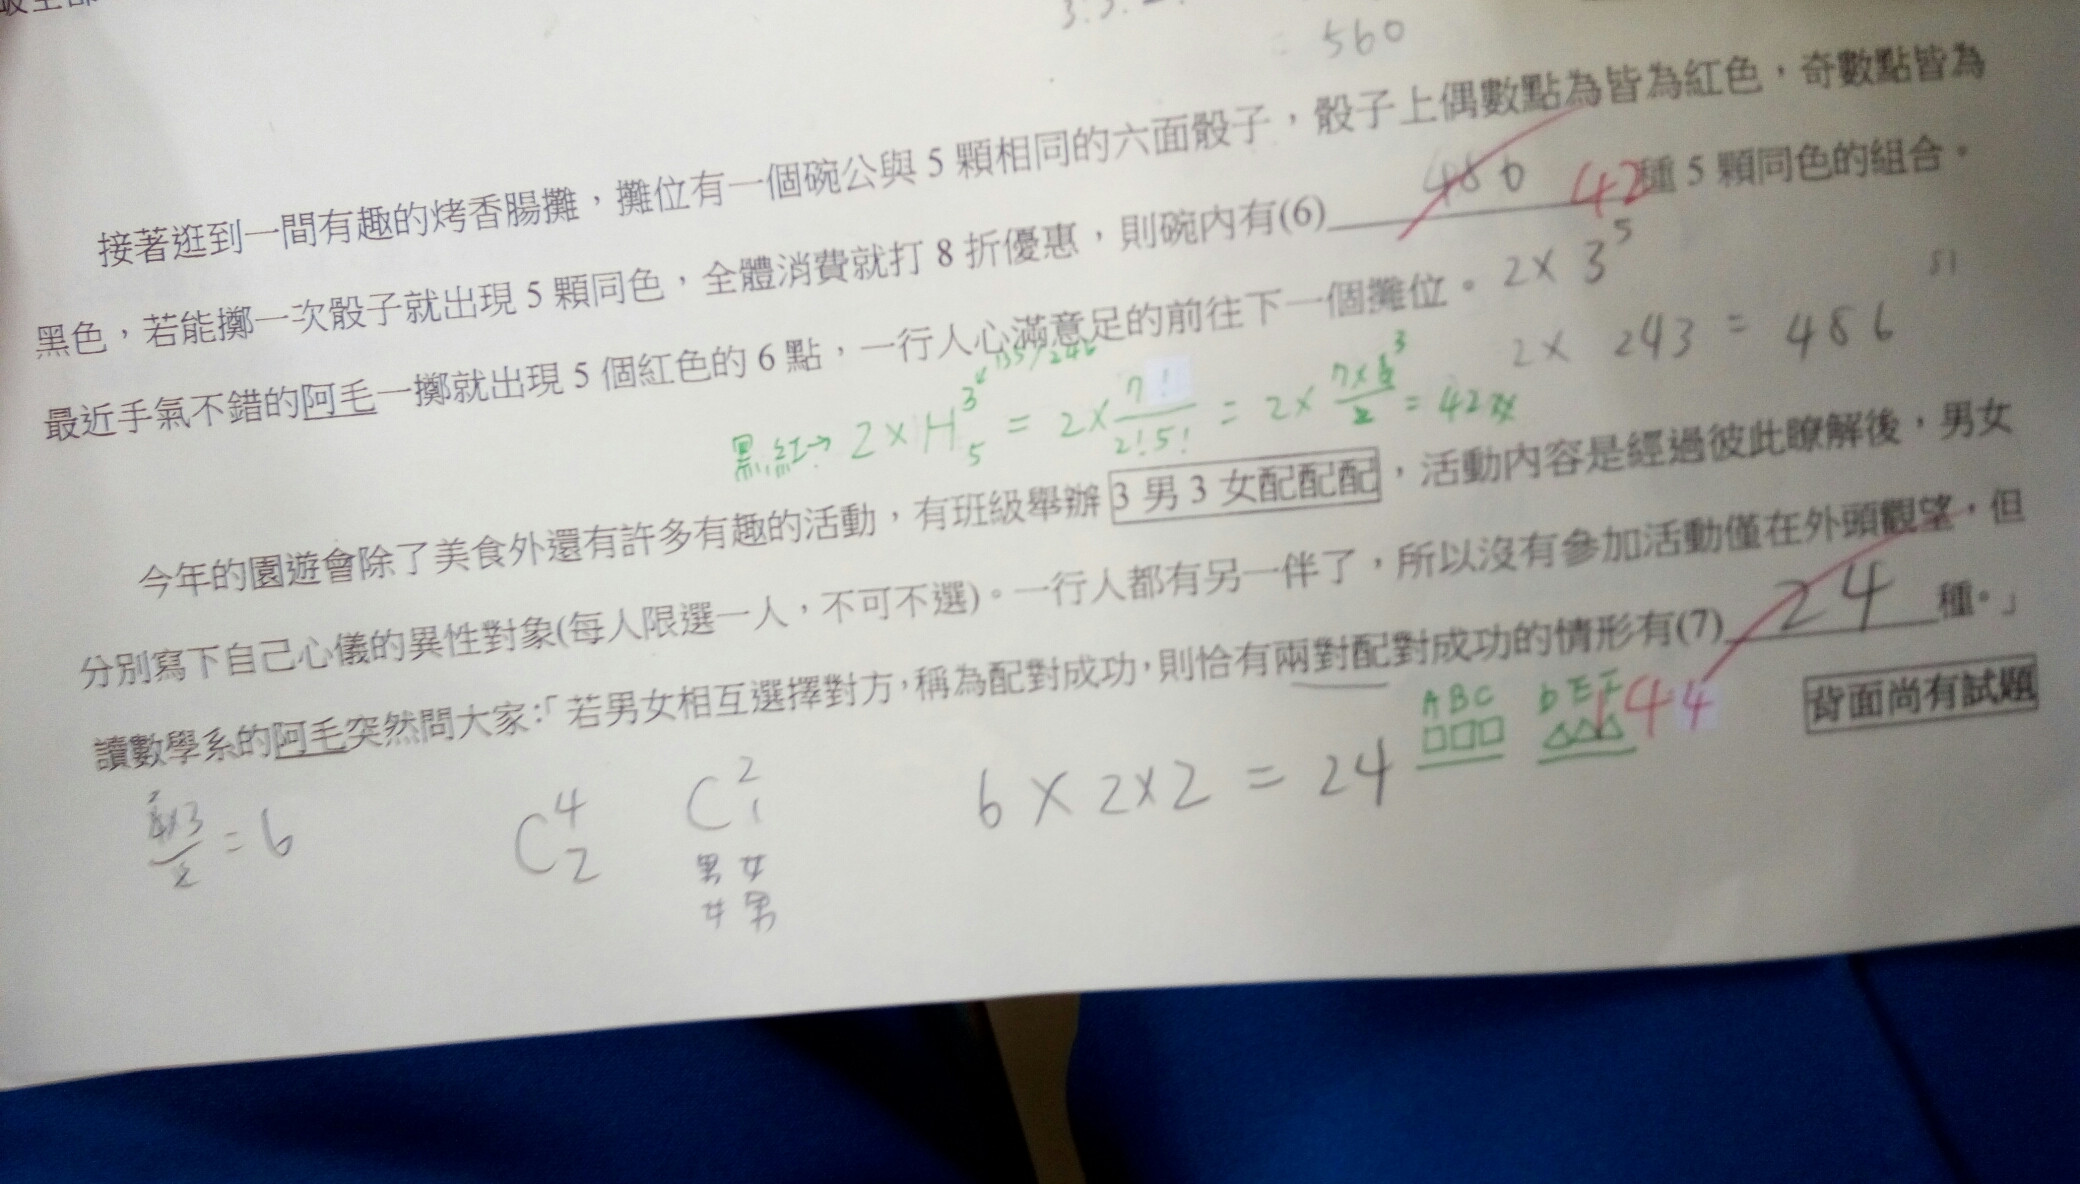 = 560
接著逛到一間有趣的烤香腸攤，攤位有一個碗公與 5 顆相同的六面骰子，骰子上偶數點為皆為紅色，奇數點皆為
黑色，若能擲一次骰子就出現 5 顆同色，全體消費就打 8 折優惠，則碗內有(6) 486 42 種 5 顆同色的組合。
最近手氣不錯的阿毛一擲就出現 5 個紅色的 6 點，一行人心滿意足的前往下一個攤位。 2×3^5
135/246
2× 243 = 486
81
黑,紅→ 2×H^3_5 = 2×7!/2!5! = 2×7×6^3/2 = 42
今年的園遊會除了美食外還有許多有趣的活動，有班級舉辦 3 男 3 女配配配，活動內容是經過彼此瞭解後，男女
分別寫下自己心儀的異性對象(每人限選一人，不可不選)。一行人都有另一伴了，所以沒有參加活動僅在外頭觀望，但
讀數學系的阿毛突然問大家：「若男女相互選擇對方，稱為配對成功，則恰有兩對配對成功的情形有(7) 24 種。」
A B C D E F
144
背面尚有試題
4×3/2 = 6 C^4_2 C^2_1 6×2×2 = 24
男 女
女 男